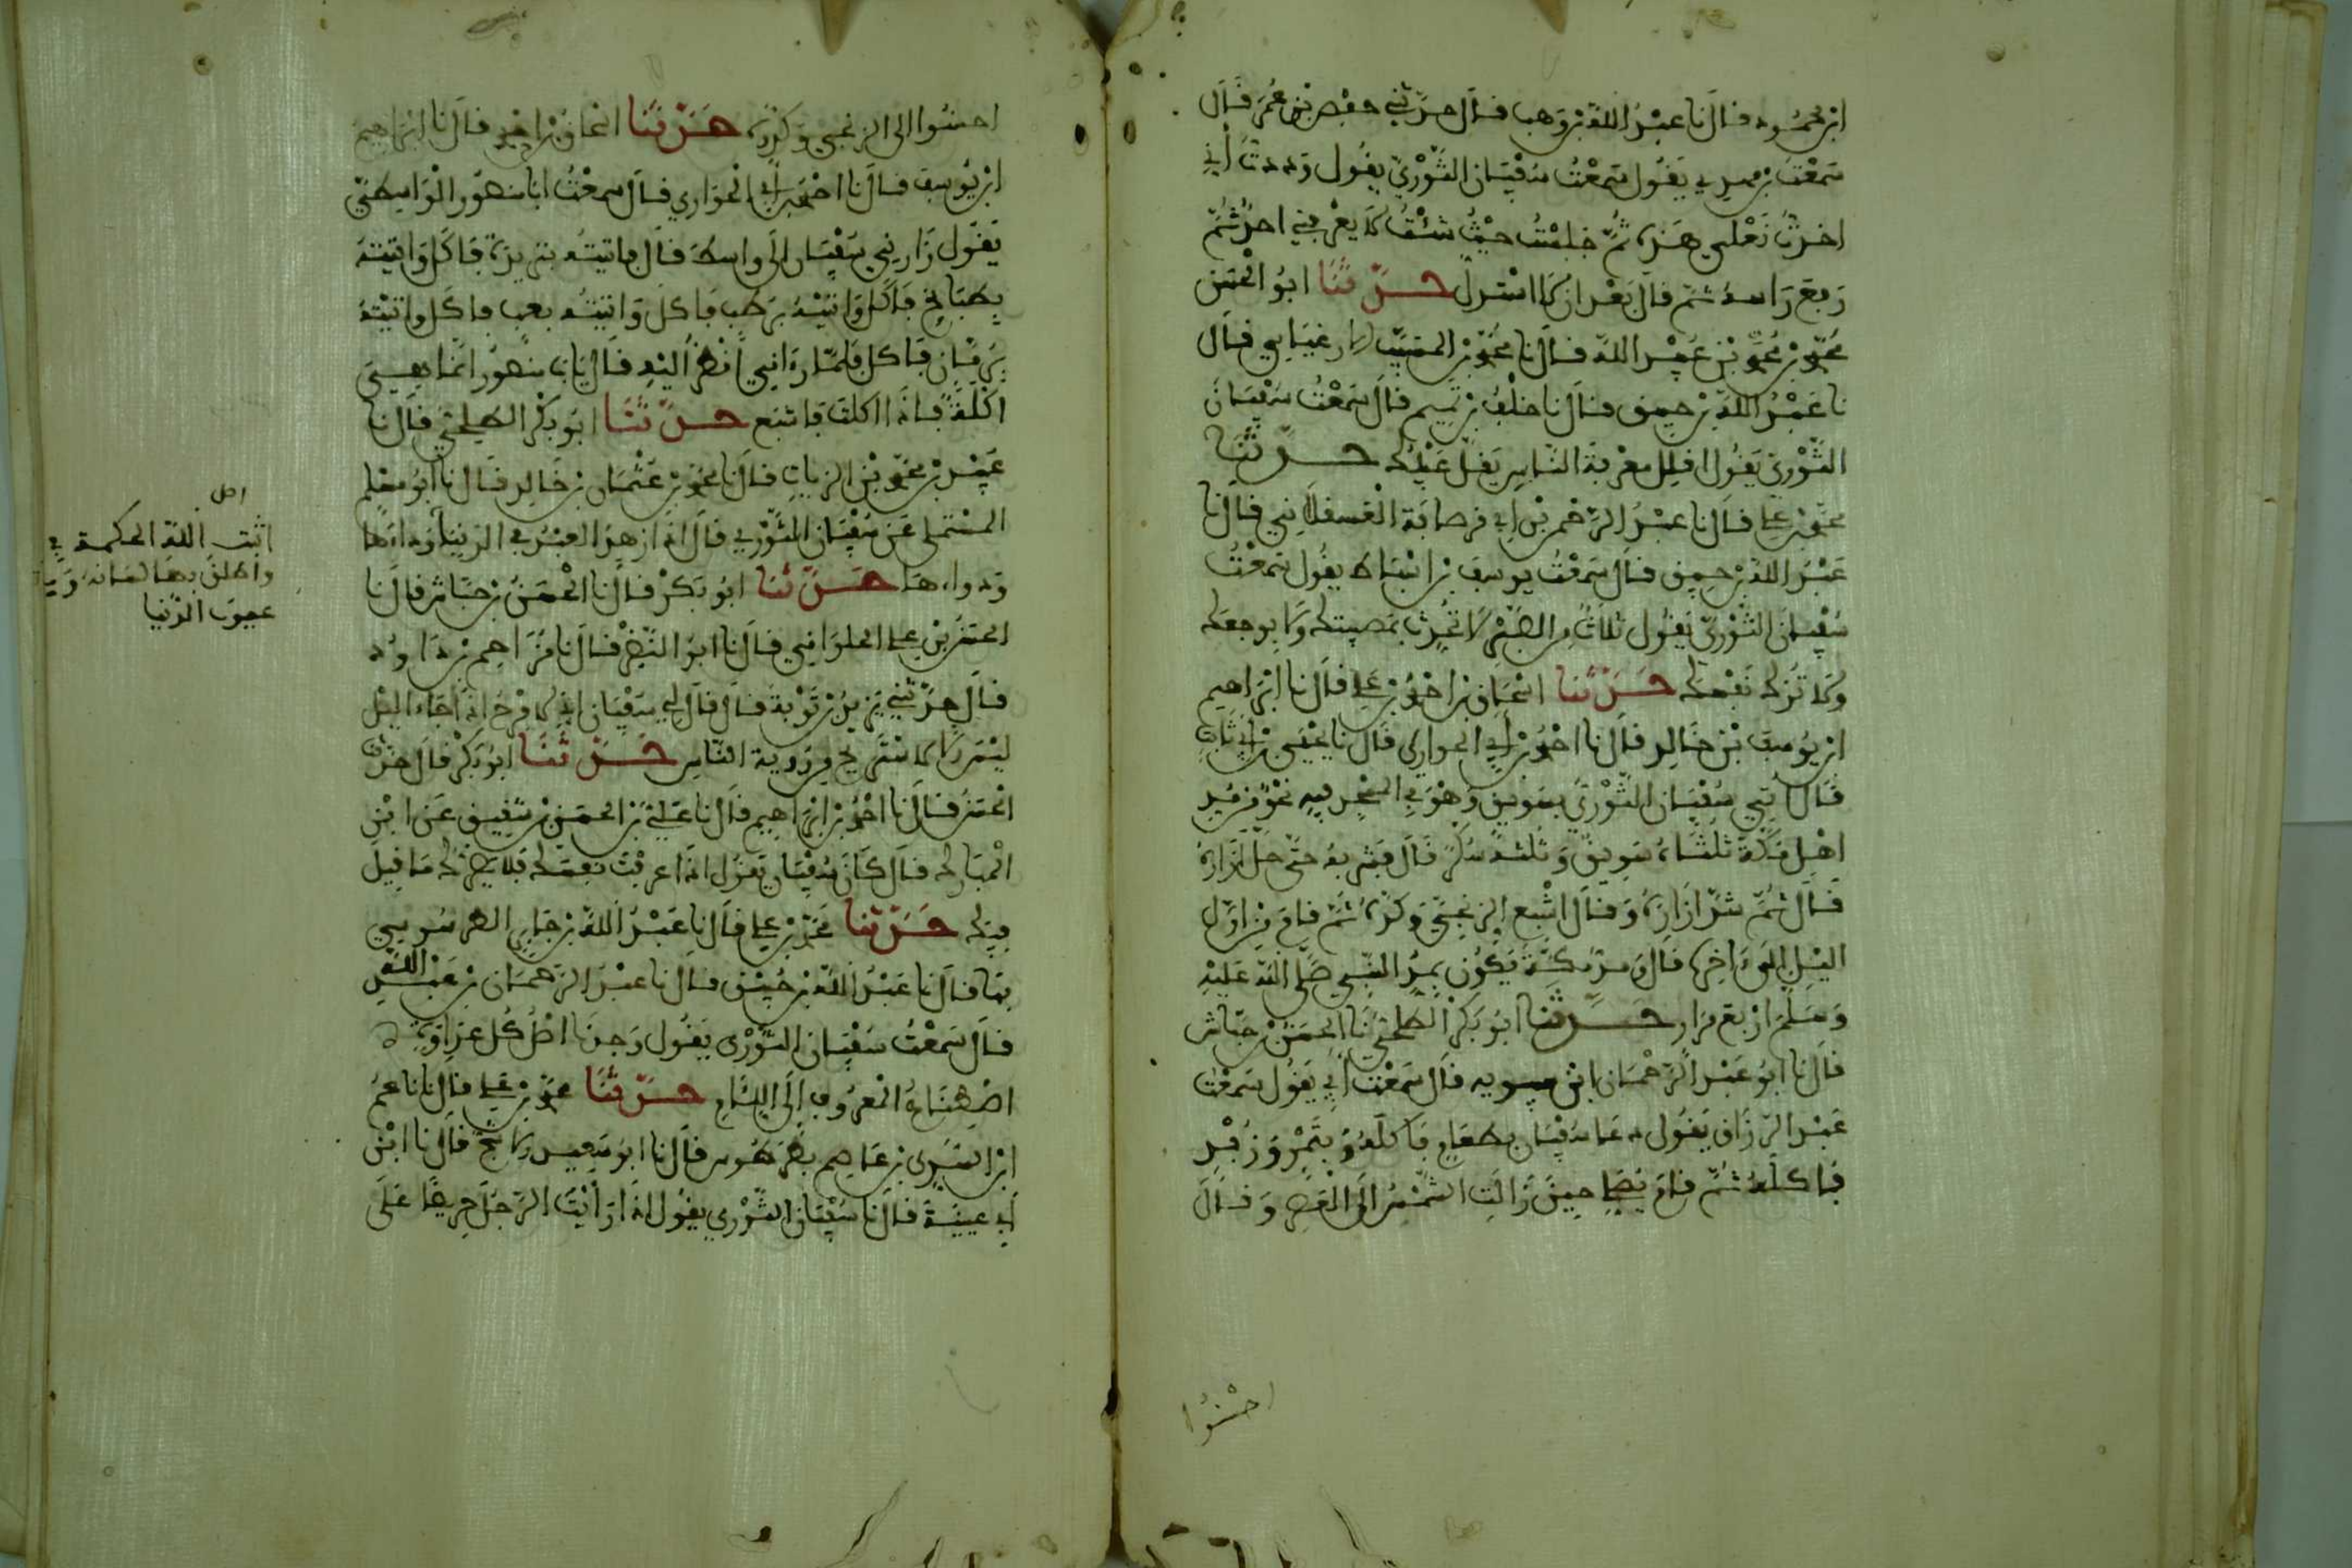 ابن محمود قال نا عبد الله بن وهب قال حدثني حفص بن عمر قال
سمعت بن مهدي يقول سمعت سفيان الثوري يقول وددت أني
اخذت نعلي هذه ثم جلست حيث شئت لا يعرفني احد ثم
رفع راسه ثم قال بعد ان لا استذل حدثنا ابو الحسن
محمد بن محمد بن عبيد الله قال نا محمد بن المسيب الارغياني قال
نا عبد الله بن خبيق قال نا خلف بن تميم قال سمعت سفيان
الثوري يقول اقلل معرفة الناس يقل عيبك حدثنا
محمد بن علي قال نا عبد الرحمن بن ابي قرصافة العسقلاني قال نا
عبد الله بن خبيق قال سمعت يوسف بن اسباط يقول سمعت
سفيان الثوري يقول ثلاث من الصبر لا تحدث بمصيبتك ولا بوجعك
ولا تزك نفسك حدثنا اسحاق بن احمد بن علي قال نا ابراهيم
ابن يوسف بن خالد قال نا احمد بن أبي الحواري قال نا يحيى بن أبي ثابت
قال اتي سفيان الثوري بسويق وهو في المسجد فيه نحو من مد
اهل مكة ثلثاه سويق وثلثه سكر قال فشربه حتى حل ازاره
قال ثم شد ازاره وقال اشبع الزنجي وكده ثم قام من اول
اليل الى ءاخره قال ومد مكة يكون بمد النبي صلى الله عليه
وسلم اربع مرار حدثنا ابو بكر الطلحي نا الحسن بن حباش
قال نا ابو عبد الرحمان ابن سيويه قال سمعت أبي يقول سمعت
عبد الرزاق يقول دعا سفيان بطعام فاكله وبتمر وزبد
فاكله ثم قام يصلي حين زالت الشمس الى العصر وقال
احسنوا
احسنوا الى الزنجي وكده حدثنا اسحاق بن احمد قال نا ابراهيم
ابن يوسف قال نا احمد بن أبي الحواري قال سمعت ابا منصور الواسطي
يقول زارني سفيان الى واسط قال فاتيته بثريدة فاكل واتيته
بطباخ فاكل واتيته برطب فاكل واتيته بعنب فاكل واتيته
برمان فاكل فلما رءاني انظر اليه قال يابا منصور انما هي
اكلة فاذا اكلت فاشبع حدثنا ابو بكر الطلحي قال نا
عبيد بن محمد بن الزيات قال نا محمد بن عثمان بن خالد قال نا ابو مسلم
المستملي عن سفيان الثوري قال اذا زهد العبد في الدنيا
ودواءها حدثنا ابو بكر قال نا الحسن بن حباش قال نا
الحسن بن علي الحلواني قال نا ابو النضر قال نا مزاحم بن داود
قال حدثني يزيد بن توبة قال قال لي سفيان اني لا فرح اذا جاء اليل
ليس الا لاستريح من روية الناس حدثنا ابو بكر قال حدثنا
الحسن قال نا احمد بن ابراهيم قال نا علي بن الحسن بن شقيق عن ابن
المبارك قال كان سفيان يقول اذا عرفت نفسك فلا يضرك ما قيل
فيك حدثنا محمد بن علي قال نا عبد الله بن جابر الطرسوسي
بها قال نا عبد الله بن خبيق قال نا عبد الرحمان بن عبد الله
قال سمعت سفيان الثوري يقول وجدنا اصل كل عداوة
اصطناع المعروف الى اللئام حدثنا محمد بن علي قال نا عمر
ابن السري بن عاصم بطرطوس قال نا ابو سعيد الاشج قال نا ابن
أبي عيينة قال نا سفيان الثوري يقول اذا رأيت الرجل حريصا على
اصل
اثبت الله الحكمة في
واطلق بها لسانه
عيوب الدنيا